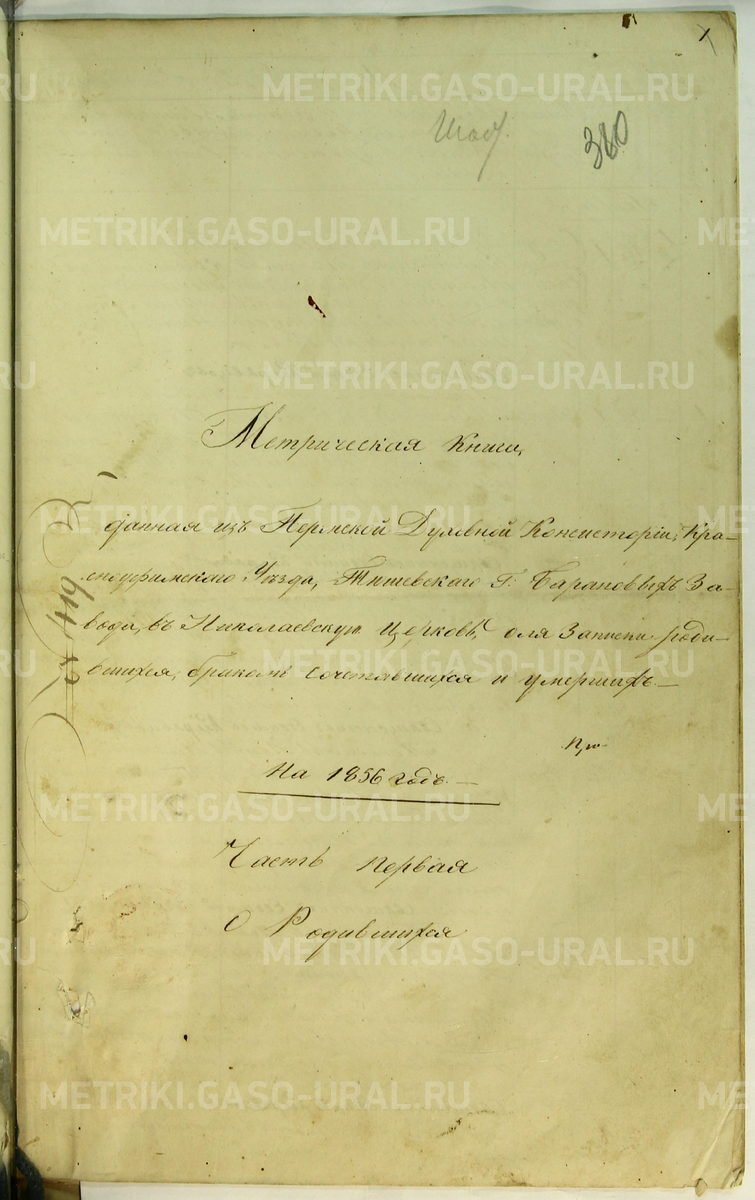 1
380
Метрическая книга,
данная изъ Пермской Духовной Консисторіи, Кра-
сноуфимскаго Уѣзда, Тисовскаго Г. Барановыхъ За-
вода, въ Николаевскую церковь, для записки роди-
вшихся, бракомъ сочетавшихся и умершихъ
На 1856 годъ
Часть первая
О Родившихся
METRIKI.GASO-URAL.RU